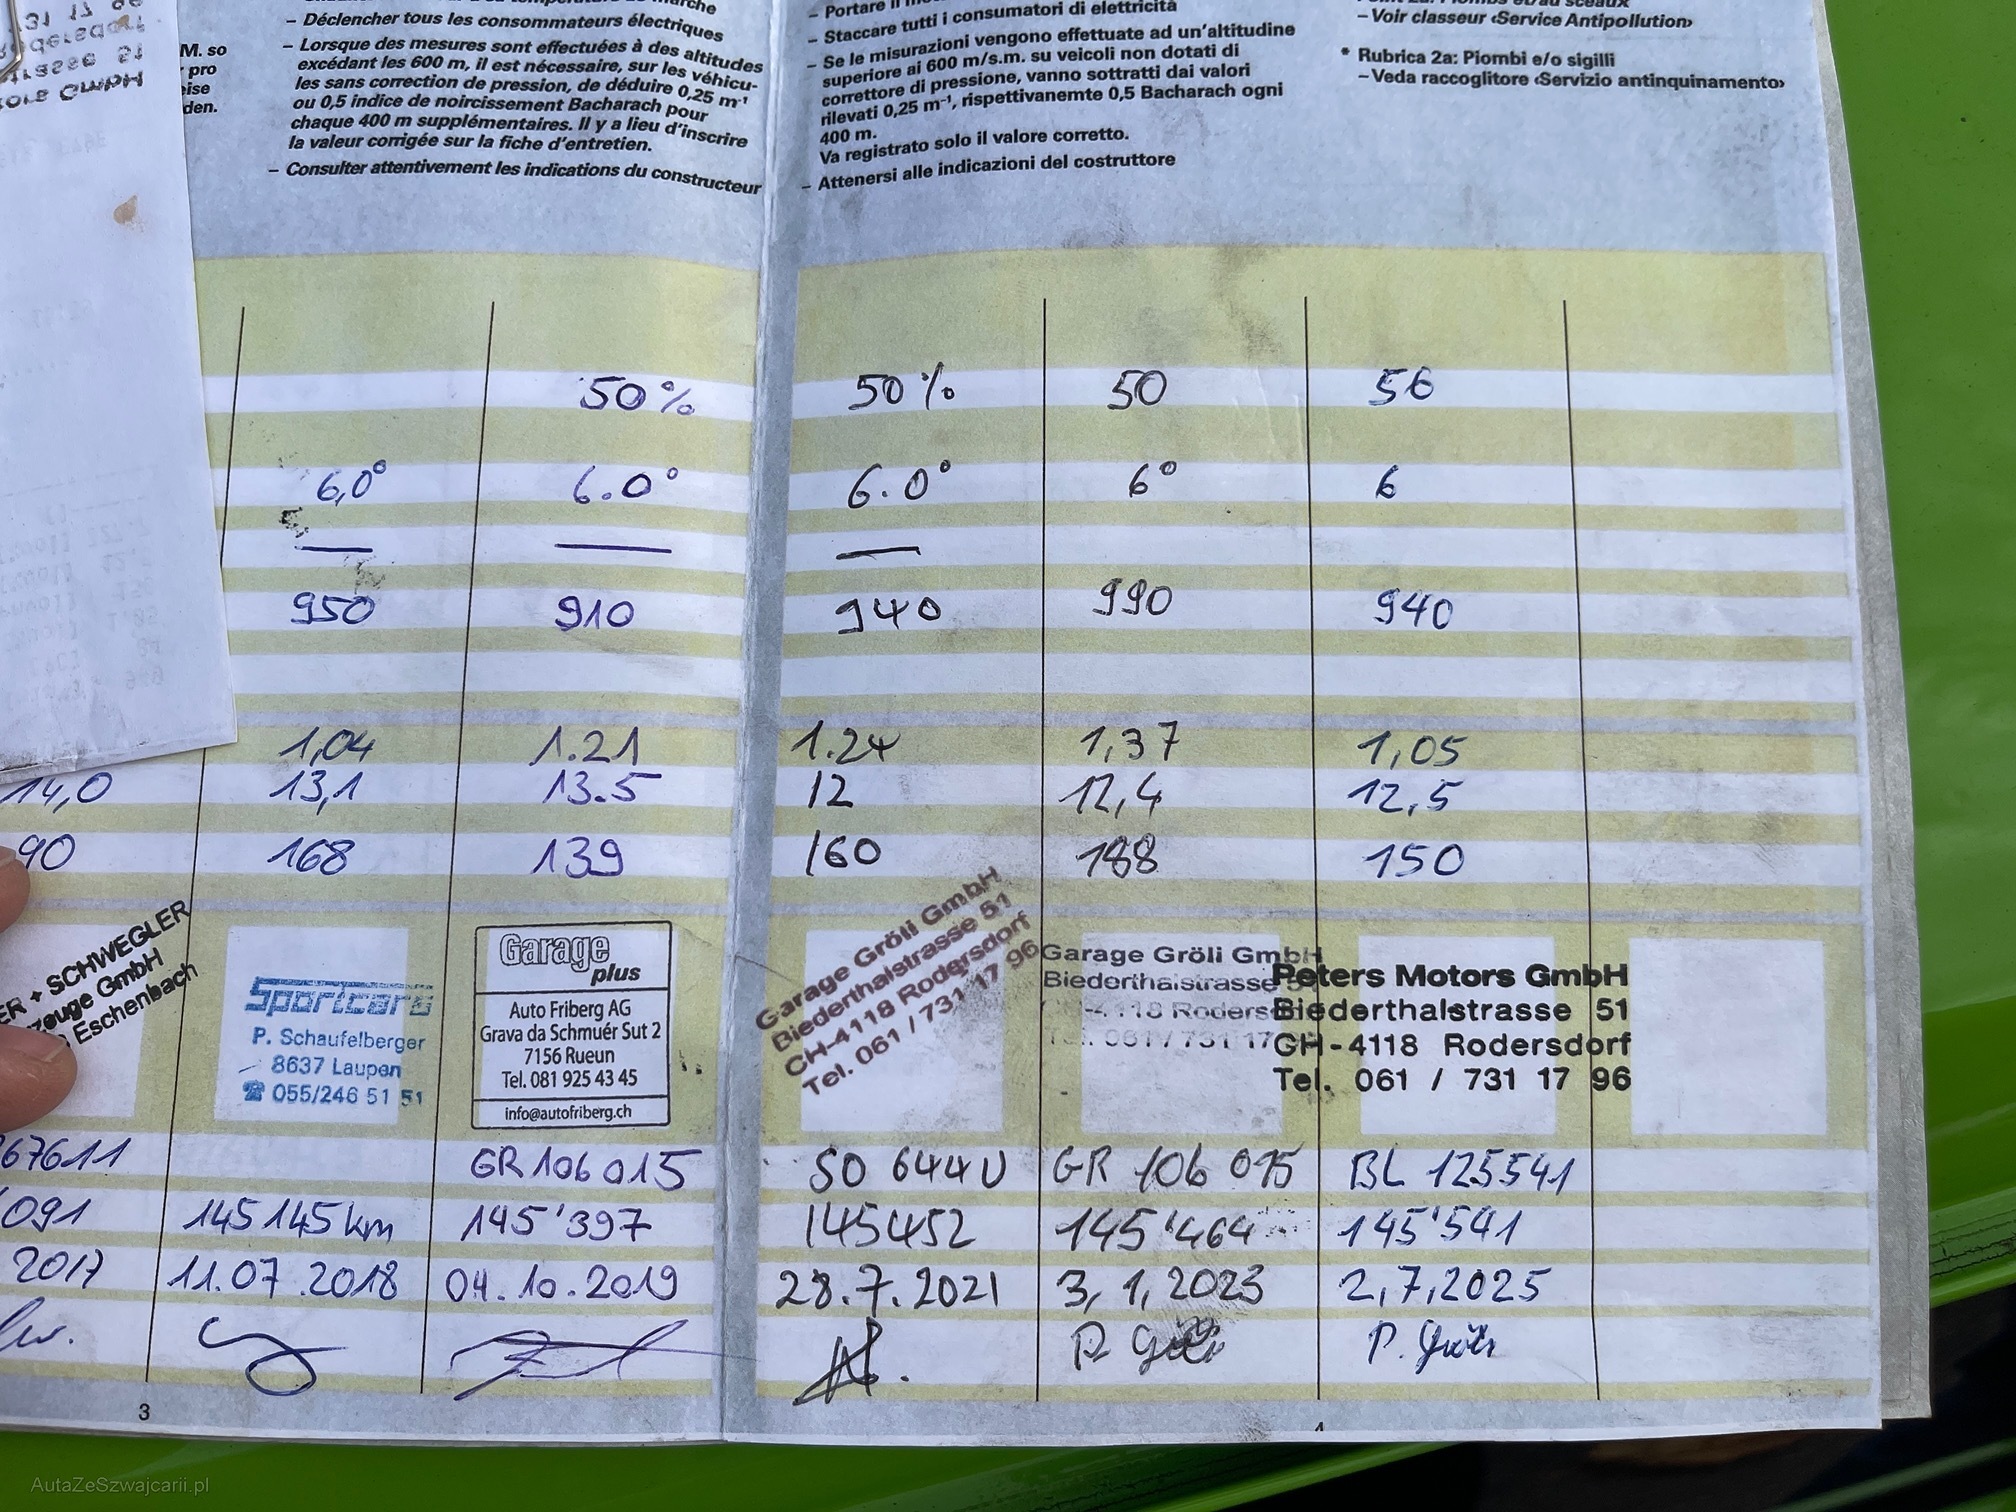 31 17 96
M. so
pro
eise
den.
– Déclencher tous les consommateurs électriques
– Lorsque des mesures sont effectuées à des altitudes
excédant les 600 m, il est nécessaire, sur les véhicu-
les sans correction de pression, de déduire 0,25 m⁻¹
ou 0,5 indice de noircissement Bacharach pour
chaque 400 m supplémentaires. Il y a lieu d'inscrire
la valeur corrigée sur la fiche d'entretien.
– Consulter attentivement les indications du constructeur
– Portare il
– Staccare tutti i consumatori di elettricità
– Se le misurazioni vengono effettuate ad un'altitudine
superiore ai 600 m/s.m. su veicoli non dotati di
correttore di pressione, vanno sottratti dai valori
rilevati 0,25 m⁻¹, rispettivanemte 0,5 Bacharach ogni
400 m.
Va registrato solo il valore corretto.
– Attenersi alle indicazioni del costruttore
– Voir classeur ‹Service Antipollution›
* Rubrica 2a: Piombi e/o sigilli
– Veda raccoglitore ‹Servizio antinquinamento›
50% 50% 50 56
6,0° 6.0° 6.0° 6° 6
— — —
950 910 940 990 940
1,04 1.21 1.24 1,37 1,05
14,0 13,1 13.5 12 12,4 12,5
90 168 139 160 188 150
ER + SCHWEGLER
zeuge GmbH
Eschenbach
Sportcars
P. Schaufelberger
8637 Laupen
☎ 055/246 51 51
Garage
plus
Auto Friberg AG
Grava da Schmuér Sut 2
7156 Rueun
Tel. 081 925 43 45
info@autofriberg.ch
Garage Gröli GmbH
Biederthalstrasse 51
CH-4118 Rodersdorf
Tel. 061 / 731 17 96
Garage Gröli GmbH
Biederthalstrasse
-4118 Roders
Tel. 061 / 731 17
Peters Motors GmbH
Biederthalstrasse 51
CH-4118 Rodersdorf
Tel. 061 / 731 17 96
67611 GR 106 015 SO 644U GR 106 015 BL 125541
091 145 145 km 145'397 145452 145'464 145'541
2017 11.07.2018 04.10.2019 28.7.2021 3,1,2023 2,7,2025
3
4
AutaZeSzwajcarii.pl